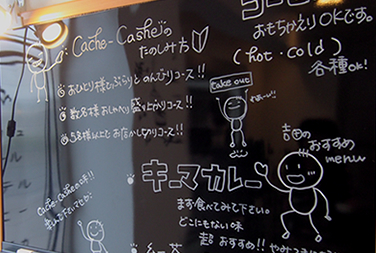 Cache-Casheの
たのしみ方
おひとり様でふらりと のんびりコース!!
数名様おしゃべり 盛り上がりコース!!
5名様以上で お店かし切りコース!!
おもちかえりOKです。
(hot・cold)
各種OK!
take out
キーマカレー
まず食べてみて下さい。
どこにもない味
超 おすすめ!!
吉田の
おすすめ
menu